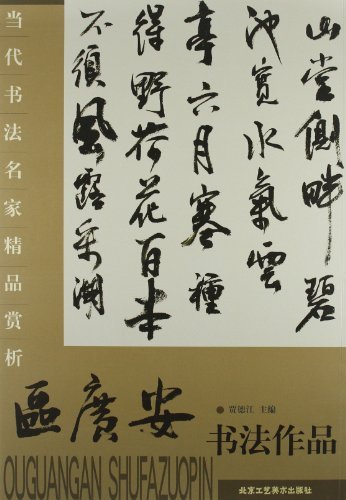 当代书法名家精品赏析
山堂側畔碧
池寬水氣雲
亭六月寒種
得野荷花百本
不須風露
區廣安
贾德江 主编
书法作品
OUGUANGAN SHUFAZUOPIN
北京工艺美术出版社